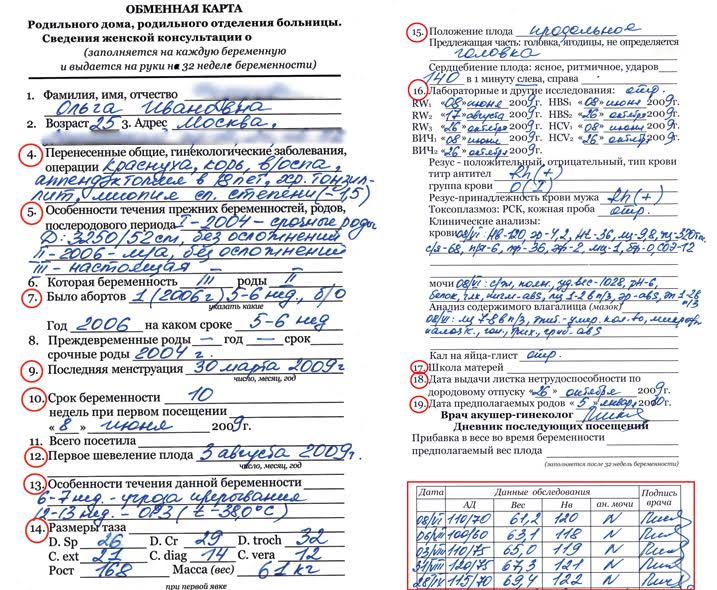 ОБМЕННАЯ КАРТА
Родильного дома, родильного отделения больницы.
Сведения женской консультации о
(заполняется на каждую беременную
и выдается на руки на 32 неделе беременности)
1. Фамилия, имя, отчество
Ольга Ивановна
2. Возраст 25 3. Адрес Москва,
4. Перенесенные общие, гинекологические заболевания,
операции краснуха, корь, в/оспа,
аппендэктомия в 18 лет, хр. тонзил-
лит, миопия сл. степени (-1,5)
5. Особенности течения прежних беременностей, родов,
послеродового периода I - 2004 - срочные роды
D: 3250/52см, без осложнений
II - 2006 - м/а, без осложнений
III - настоящая
6. Которая беременность III роды II
7. Было абортов 1 (2006г) 5-6 нед., б/о
указать какие
Год 2006 на каком сроке 5-6 нед
8. Преждевременные роды — год — срок
срочные роды 2004 г.
9. Последняя менструация 30 марта 2009г
число, месяц, год
10. Срок беременности 10
недель при первом посещении
« 8 » июня 2009г.
11. Всего посетила
12. Первое шевеление плода 3 августа 2009г.
число, месяц, год
13. Особенности течения данной беременности
6-7 нед. - угроза прерывания
12-13 нед. - ОРЗ (t - 38,0°C)
14. Размеры таза
D. Sp 26 D. Cr 29 D. troch 32
C. ext 21 C. diag 14 C. vera 12
Рост 168 Масса (вес) 61 кг
при первой явке
15. Положение плода продольное
Предлежащая часть: головка, ягодицы, не определяется
головка
Сердцебиение плода: ясное, ритмичное, ударов
140 в 1 минуту слева, справа
16. Лабораторные и другие исследования: отр.
RW₁ «08» июня 2009г. HBS₁ «08» июня 2009г.
RW₂ «17» августа 2009г. HBS₂ «26» октября 2009г.
RW₃ «26» октября 2009г. HCV₁ «08» июня 2009г.
ВИЧ₁ «08» июня 2009г. HCV₂ «26» октября 2009г.
ВИЧ₂ «26» октября 2009г.
Резус - положительный, отрицательный, тип крови
титр антител Rh(+)
группа крови O(I)
Резус-принадлежность крови мужа Rh(+)
Токсоплазмоз: РСК, кожная проба отр.
Клинические анализы:
крови 08/VI: Нв-120, эр-4,2, Ht-36, цп-9,8,
с/я-68, п/я-6, эф-2, мц-1, СОЭ-12
мочи 08/VI: с/ж, полн, уд.вес-1028, рН-6,
белок, abs, 1-2 в п/з, эр-abs, эп 1-2 в
п/з
Анализ содержимого влагалища (мазок)
08/VI: 7-8 в п/з, кол-во,
abs
Кал на яйца-глист отр.
17. Школа матерей
18. Дата выдачи листка нетрудоспособности по
дородовому отпуску «26» октября 2009г.
19. Дата предполагаемых родов « 5 » января 2010г.
Врач акушер-гинеколог
Дневник последующих посещений
Прибавка в весе во время беременности
предполагаемый вес плода
(заполняется после 32 недель беременности)
Дата Данные обследования Подпись врача
АД Вес Нв ан. мочи
08/VI 110/70 61,2 120 N
06/VII 100/60 63,1 118 N
03/VIII 110/75 65,0 119 N
31/VIII 120/75 67,3 121 N
28/IX 115/70 69,4 122 N